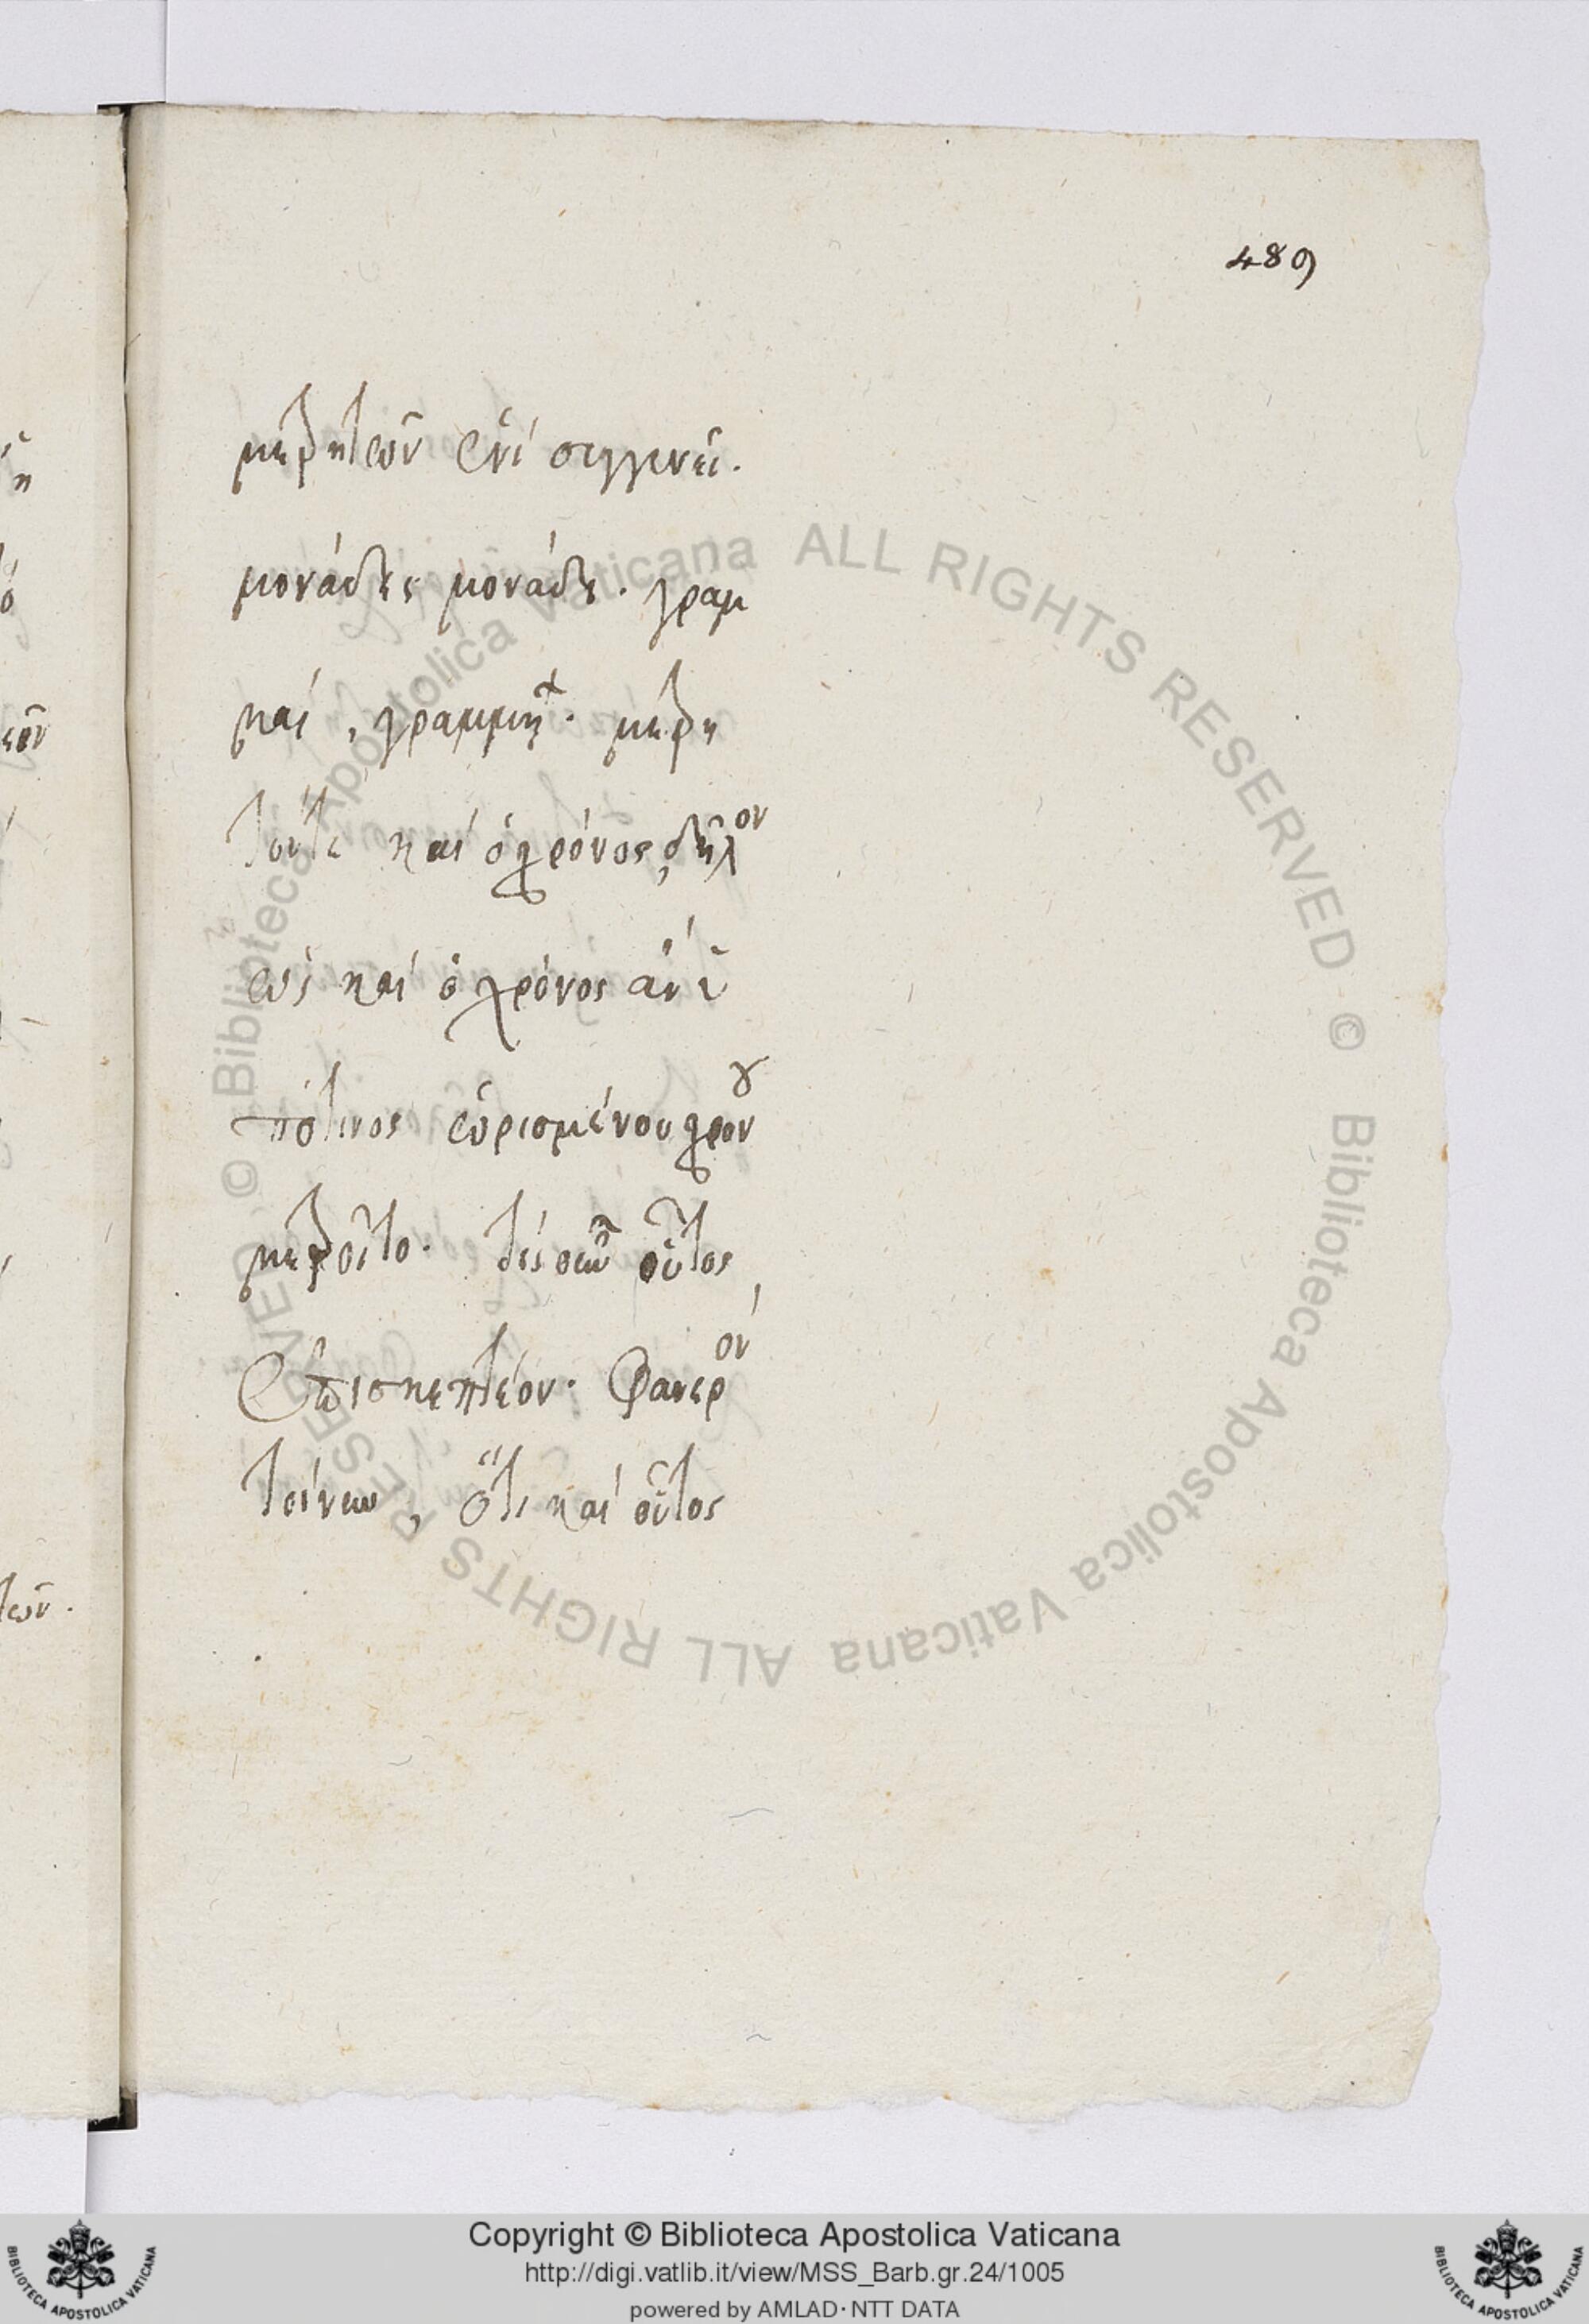 489
μετρητῶν ἑνὶ συγγενεῖ.
μονάδες μονάδι. γραμ
μαὶ, γραμμῇ. μετρεῖ
τοῦτε καὶ ὁ χρόνος, δῆλον
ὡς καὶ ὁ χρόνος ἀν ὑ
πότινος ὡρισμένου χρόνου
μετροῖτο. τίς οὖν οὗτος
ἐπισκεπτέον. φανερόν
τοίνυν, ὅτι καὶ οὗτος
© Biblioteca Apostolica Vaticana ALL RIGHTS RESERVED © Biblioteca Apostolica Vaticana ALL RIGHTS RESERVED
Copyright © Biblioteca Apostolica Vaticana
http://digi.vatlib.it/view/MSS_Barb.gr.24/1005
powered by AMLAD·NTT DATA
BIBLIOTECA APOSTOLICA VATICANA
BIBLIOTECA APOSTOLICA VATICANA